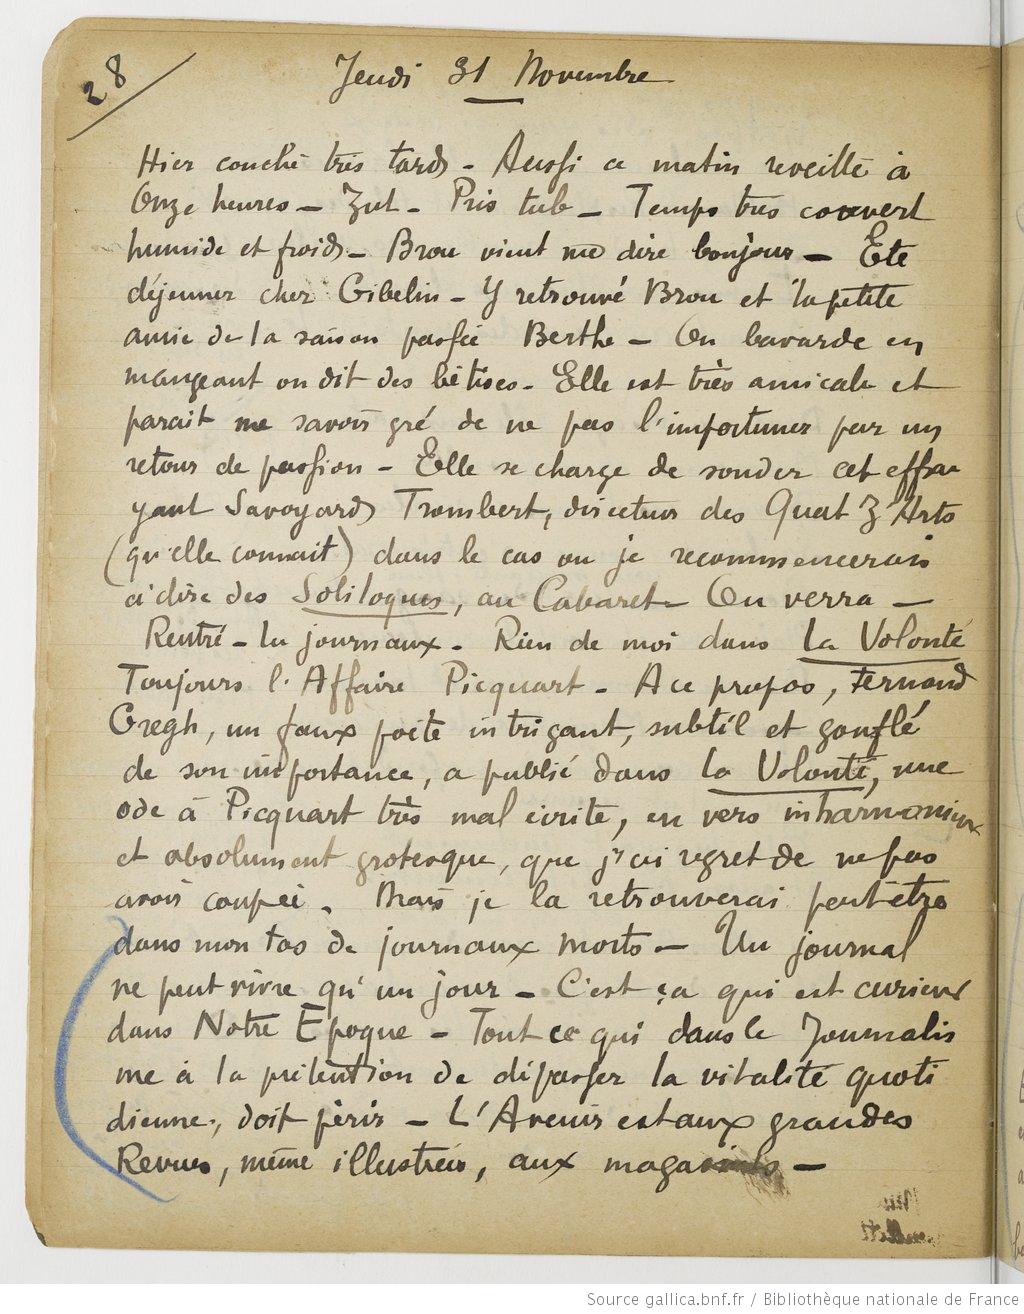 28
Jeudi 31 Novembre
Hier couché très tard - Aussi ce matin reveillé à
Onze heures - Zut - Pris tub - Temps très couvert
humide et froid - Brou vient me dire bonjour - Eté
déjeuner chez Gibelin - Y retrouvé Brou et la petite
amie de la saison passée Berthe - On bavarde en
mangeant on dit des bêtises - Elle est très amicale et
parait me savoir gré de ne pas l'importuner par un
retour de passion - Elle se charge de sonder cet effra
yant Savoyard Trombert, directeur des Quat Z'Arts
(qu'elle connait) dans le cas ou je recommencerais
à dire des Soliloques, au Cabaret - On verra -
Rentré - lu journaux - Rien de moi dans La Volonté
Toujours l'Affaire Picquart - A ce propos, Fernand
Gregh, un faux poète intrigant, subtil et gonflé
de son importance, a publié dans la Volonté, une
ode à Picquart très mal écrite, en vers inharmonieux
et absolument grotesque, que j'ai regret de ne pas
avoir coupée. Mais je la retrouverai peut être
dans mon tas de journaux morts - Un journal
ne peut vivre qu'un jour - C'est ça qui est curieux
dans Notre Epoque - Tout ce qui dans le Journalis
me à la prétention de dépasser la vitalité quoti
dienne, doit périr - L'Avenir est aux grandes
Revues, même illustrées, aux
Source gallica.bnf.fr / Bibliothèque nationale de France